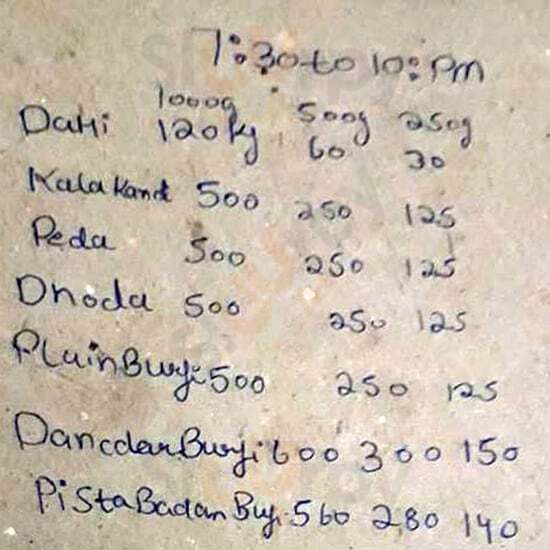 7:30 to 10: Pm
1000g 500g 250g
Dahi 120 kg 60 30
Kala Kand 500 250 125
Peda 500 250 125
Dhoda 500 250 125
Plain Burfi 500 250 125
Danedar Burfi 600 300 150
Pista Badam Bur. 560 280 140